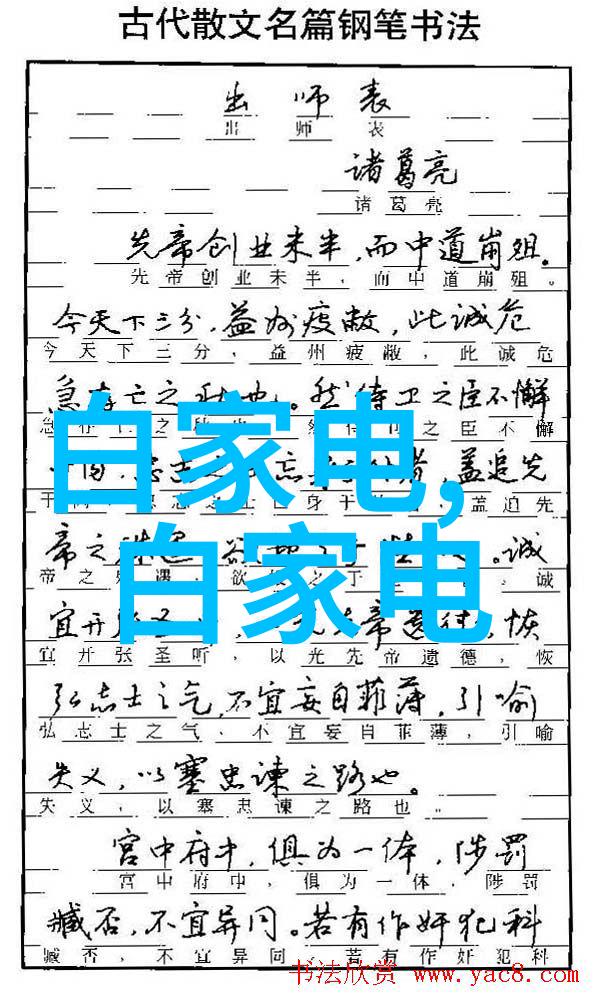 古代散文名篇钢笔书法
出 师 表
出 师 表
诸葛亮
诸葛亮
先帝创业未半,而中道崩殂。
先帝创业未半,而中道崩殂。
今天下三分,益州疲敝,此诚危
今天下三分,益州疲敝,此诚危
急存亡之秋也。然侍卫之臣不懈
之臣不懈
白家电,
盖追先
身 盖追先
帝之 诚
帝之 遇,欲 之于 诚
白家电
宜开张圣 先帝遗德,恢
宜开张圣听,以光先帝遗德,恢
弘志士之气,不宜妄自菲薄,引喻
弘志士之气,不宜妄自菲薄,引喻
失义,以塞忠谏之路也。
失义,以塞忠谏之路也。
宫中府中,俱为一体,陟罚
宫中府中,俱为一体,陟罚
臧否,不宜异同。若有作奸犯科
臧否,不宜异同。若有作奸犯科
书法欣赏 www.yac8.com